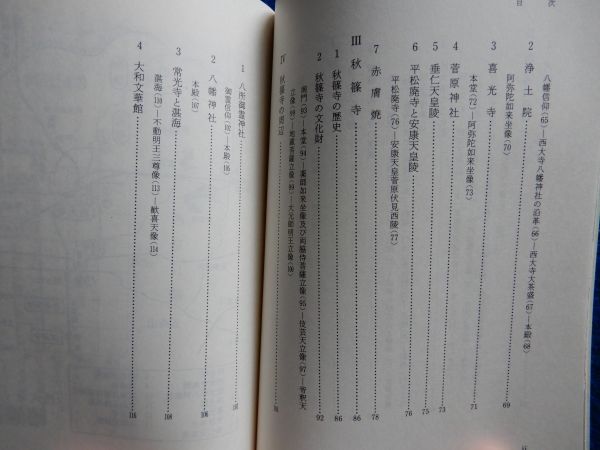 目次
八幡信仰(65)―西大寺八幡神社の沿革(66)―西大寺大茶盛(67)―本殿(68)
2 浄土院……69
阿弥陀如来坐像(70)
3 喜光寺……71
本堂(72)―阿弥陀如来坐像(73)
4 菅原神社……73
5 垂仁天皇陵……75
6 平松廃寺と安康天皇陵……76
平松廃寺(76)―安康天皇菅原伏見西陵(77)
7 赤膚焼……78
III 秋篠寺……86
1 秋篠寺の歴史……86
2 秋篠寺の文化財……92
南門(93)―本堂(94)―薬師如来坐像及び両脇侍菩薩立像(95)―伎芸天立像(97)―帝釈天
立像(98)―地蔵菩薩立像(99)―大元帥明王立像(100)
IV 秋篠寺の周辺
1 八所御霊神社
御霊信仰(102)―本殿(106)
2 八幡神社……106
本殿(107)
3 常光寺と湛海……108
湛海(110)―不動明王三尊像(113)―歓喜天像(114)
4 大和文華館……116